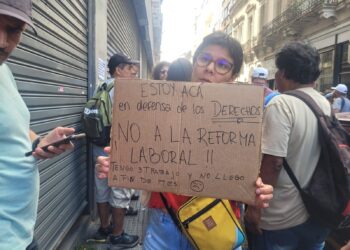 ESTOY ACÁ
en defensa de los DERECHOS
¡NO A LA REFORMA
LABORAL!!
TENGO 3 TRABAJO
Y NO LLEGO
A FIN DE MES